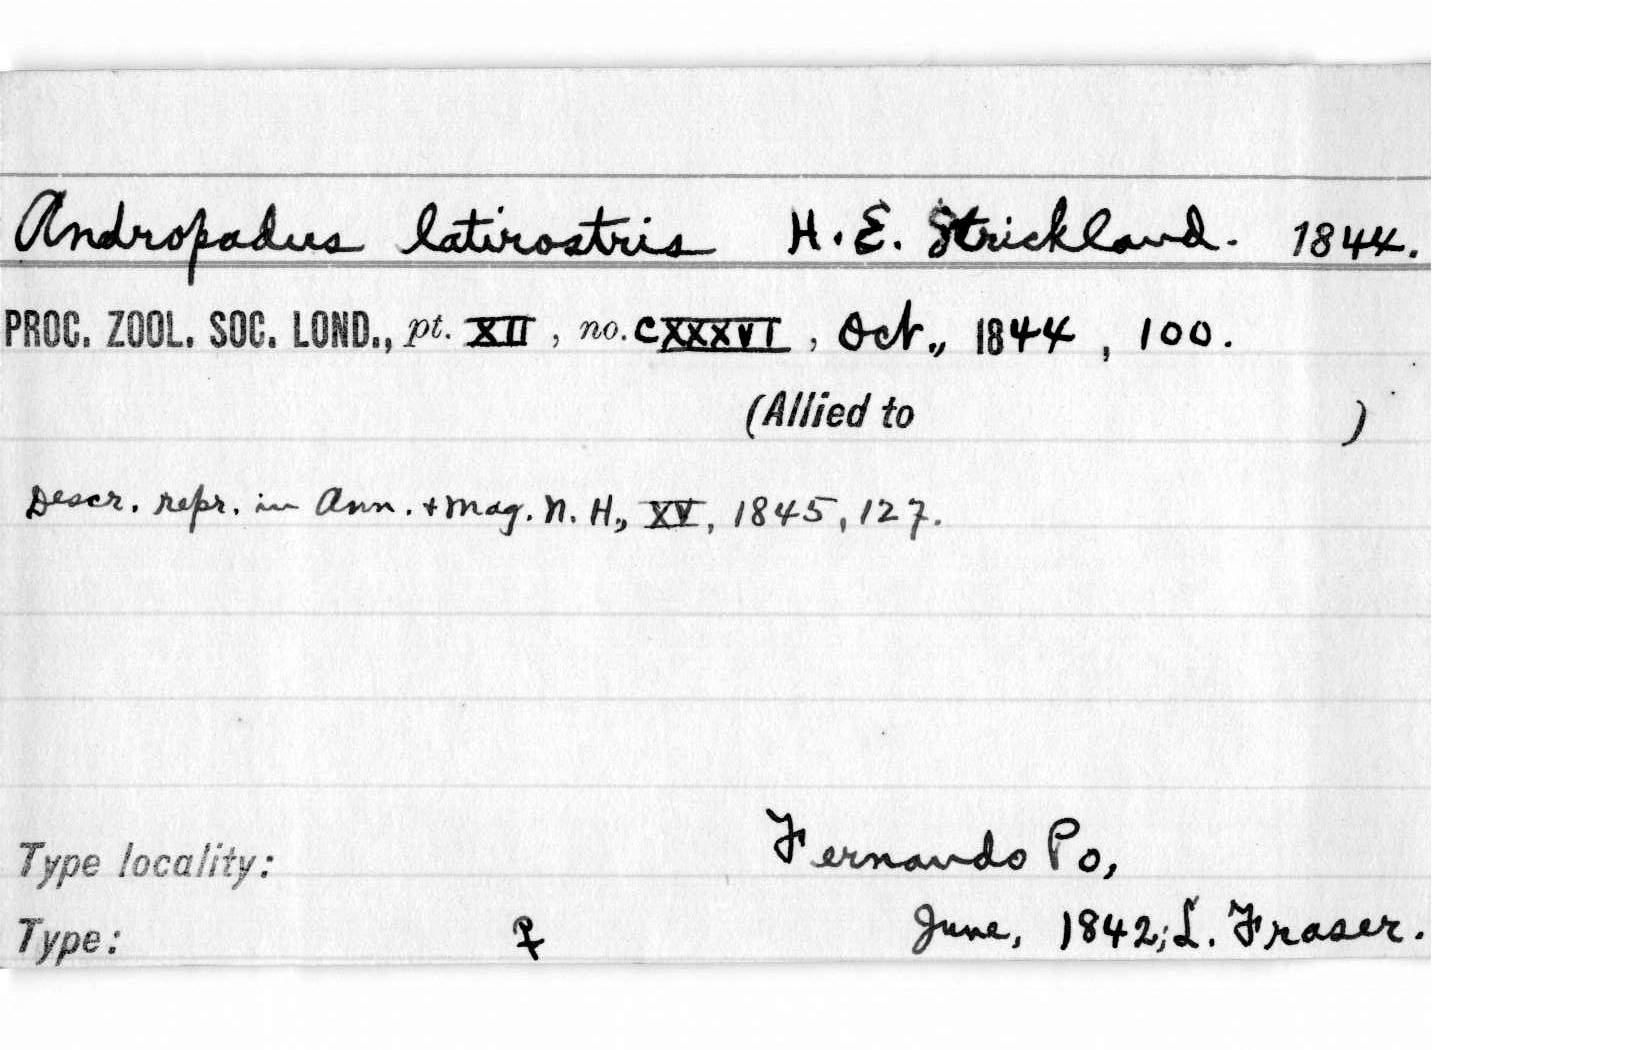 Andropadus latirostris H. E. Strickland. 1844.
PROC. ZOOL. SOC. LOND., pt. XII, no. CXXXVI, Oct., 1844, 100.
(Allied to )
Descr. repr. in Ann. + Mag. N. H., XV, 1845, 127.
Type locality: Fernando Po,
Type: ♀ June, 1842; L. Fraser.